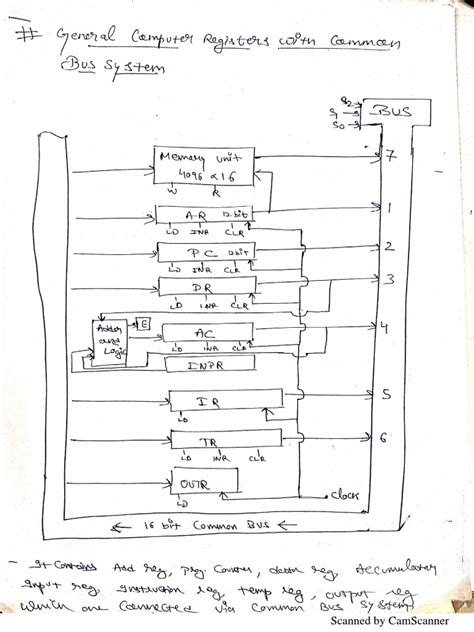 # General Computer Registers with Common
Bus System
S2
S1
S0
BUS
Memory unit
4096 x 16
7
W R
AR 12-bit
1
LD INR CLR
PC 12bit
2
LD INR CLR
DR
3
LD INR CLR
Adder
and
Logic
E
AC
4
LD INR CLR
INPR
IR
5
LD
TR
6
LD INR CLR
OUTR
LD
clock
← 16 bit Common BUS →
- It Contains Add reg, prg. Counter, data reg, Accumulator
Input reg, Instruction reg, temp reg, output reg
which are Connected via Common Bus System
Scanned by CamScanner